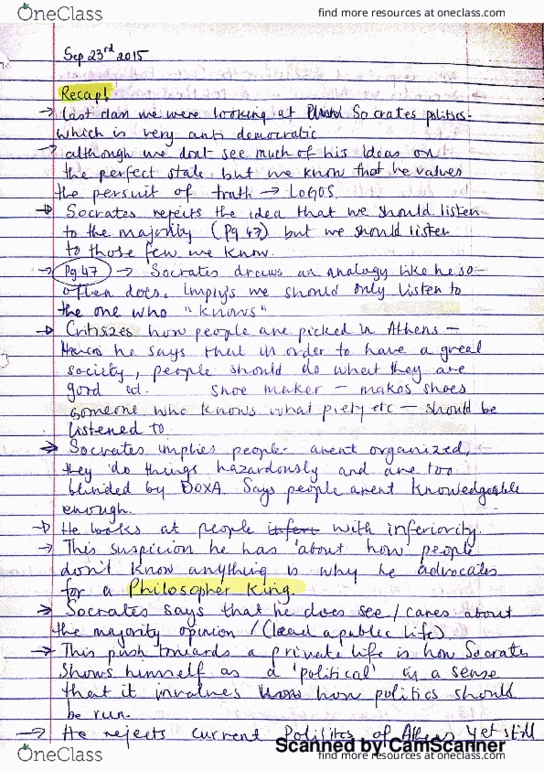 OneClass
find more resources at oneclass.com
Sep 23rd 2015
Recap!
→ last class we were looking at Socrates politics-
which is very anti democratic
→ although we dont see much of his ideas on
the perfect state but we know that he values
the persuit of truth → LOGOS.
→ Socrates rejects the idea that we should listen
to the majority (Pg 47) but we should listen
to those few we know.
→ Pg 47 → Socrates draws an analogy like he so
often does. Imply's we should only listen to
the one who "knows"
→ Critiszes how people are picked in Athens –
he says that in order to have a great
society, people should do what they are
good at. Shoe maker – makes shoes
someone who knows what piety etc – should be
listened to.
→ Socrates implies people arent organized,
they do things hazardously and are too
blinded by DOXA. Says people arent knowledgeable
enough.
→ He looks at people with inferiority.
→ This suspicion he has about how people
don't know anything is why he advocates
for a Philosopher King.
→ Socrates says that he does see/cares about
the majority opinion / (lead a public life).
→ This push towards a private life is how Socrates
shows himself as a 'political' in a sense
that it involves how politics should
be run.
→ He rejects current Politics of Athens yet still
Scanned by CamScanner
OneClass
find more resources at oneclass.com